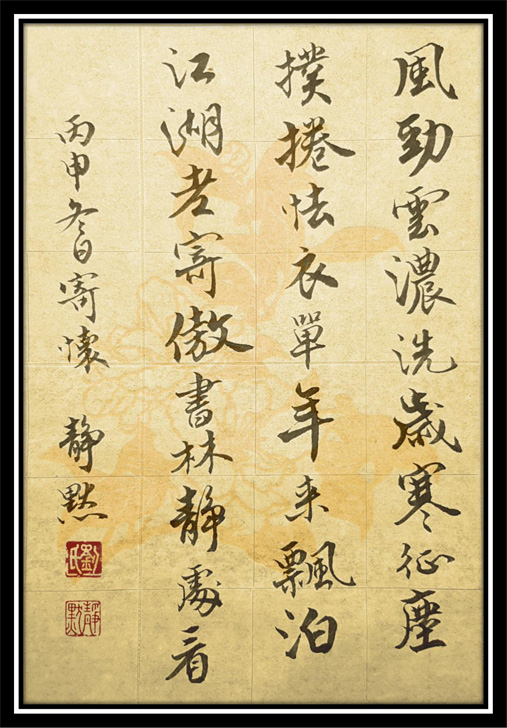 風勁雲濃洗歲寒征塵
撲捲怯衣單年来飄泊
江湖老寄傲書林靜處看
丙申冬日寄懷 靜默
劉氏
靜默